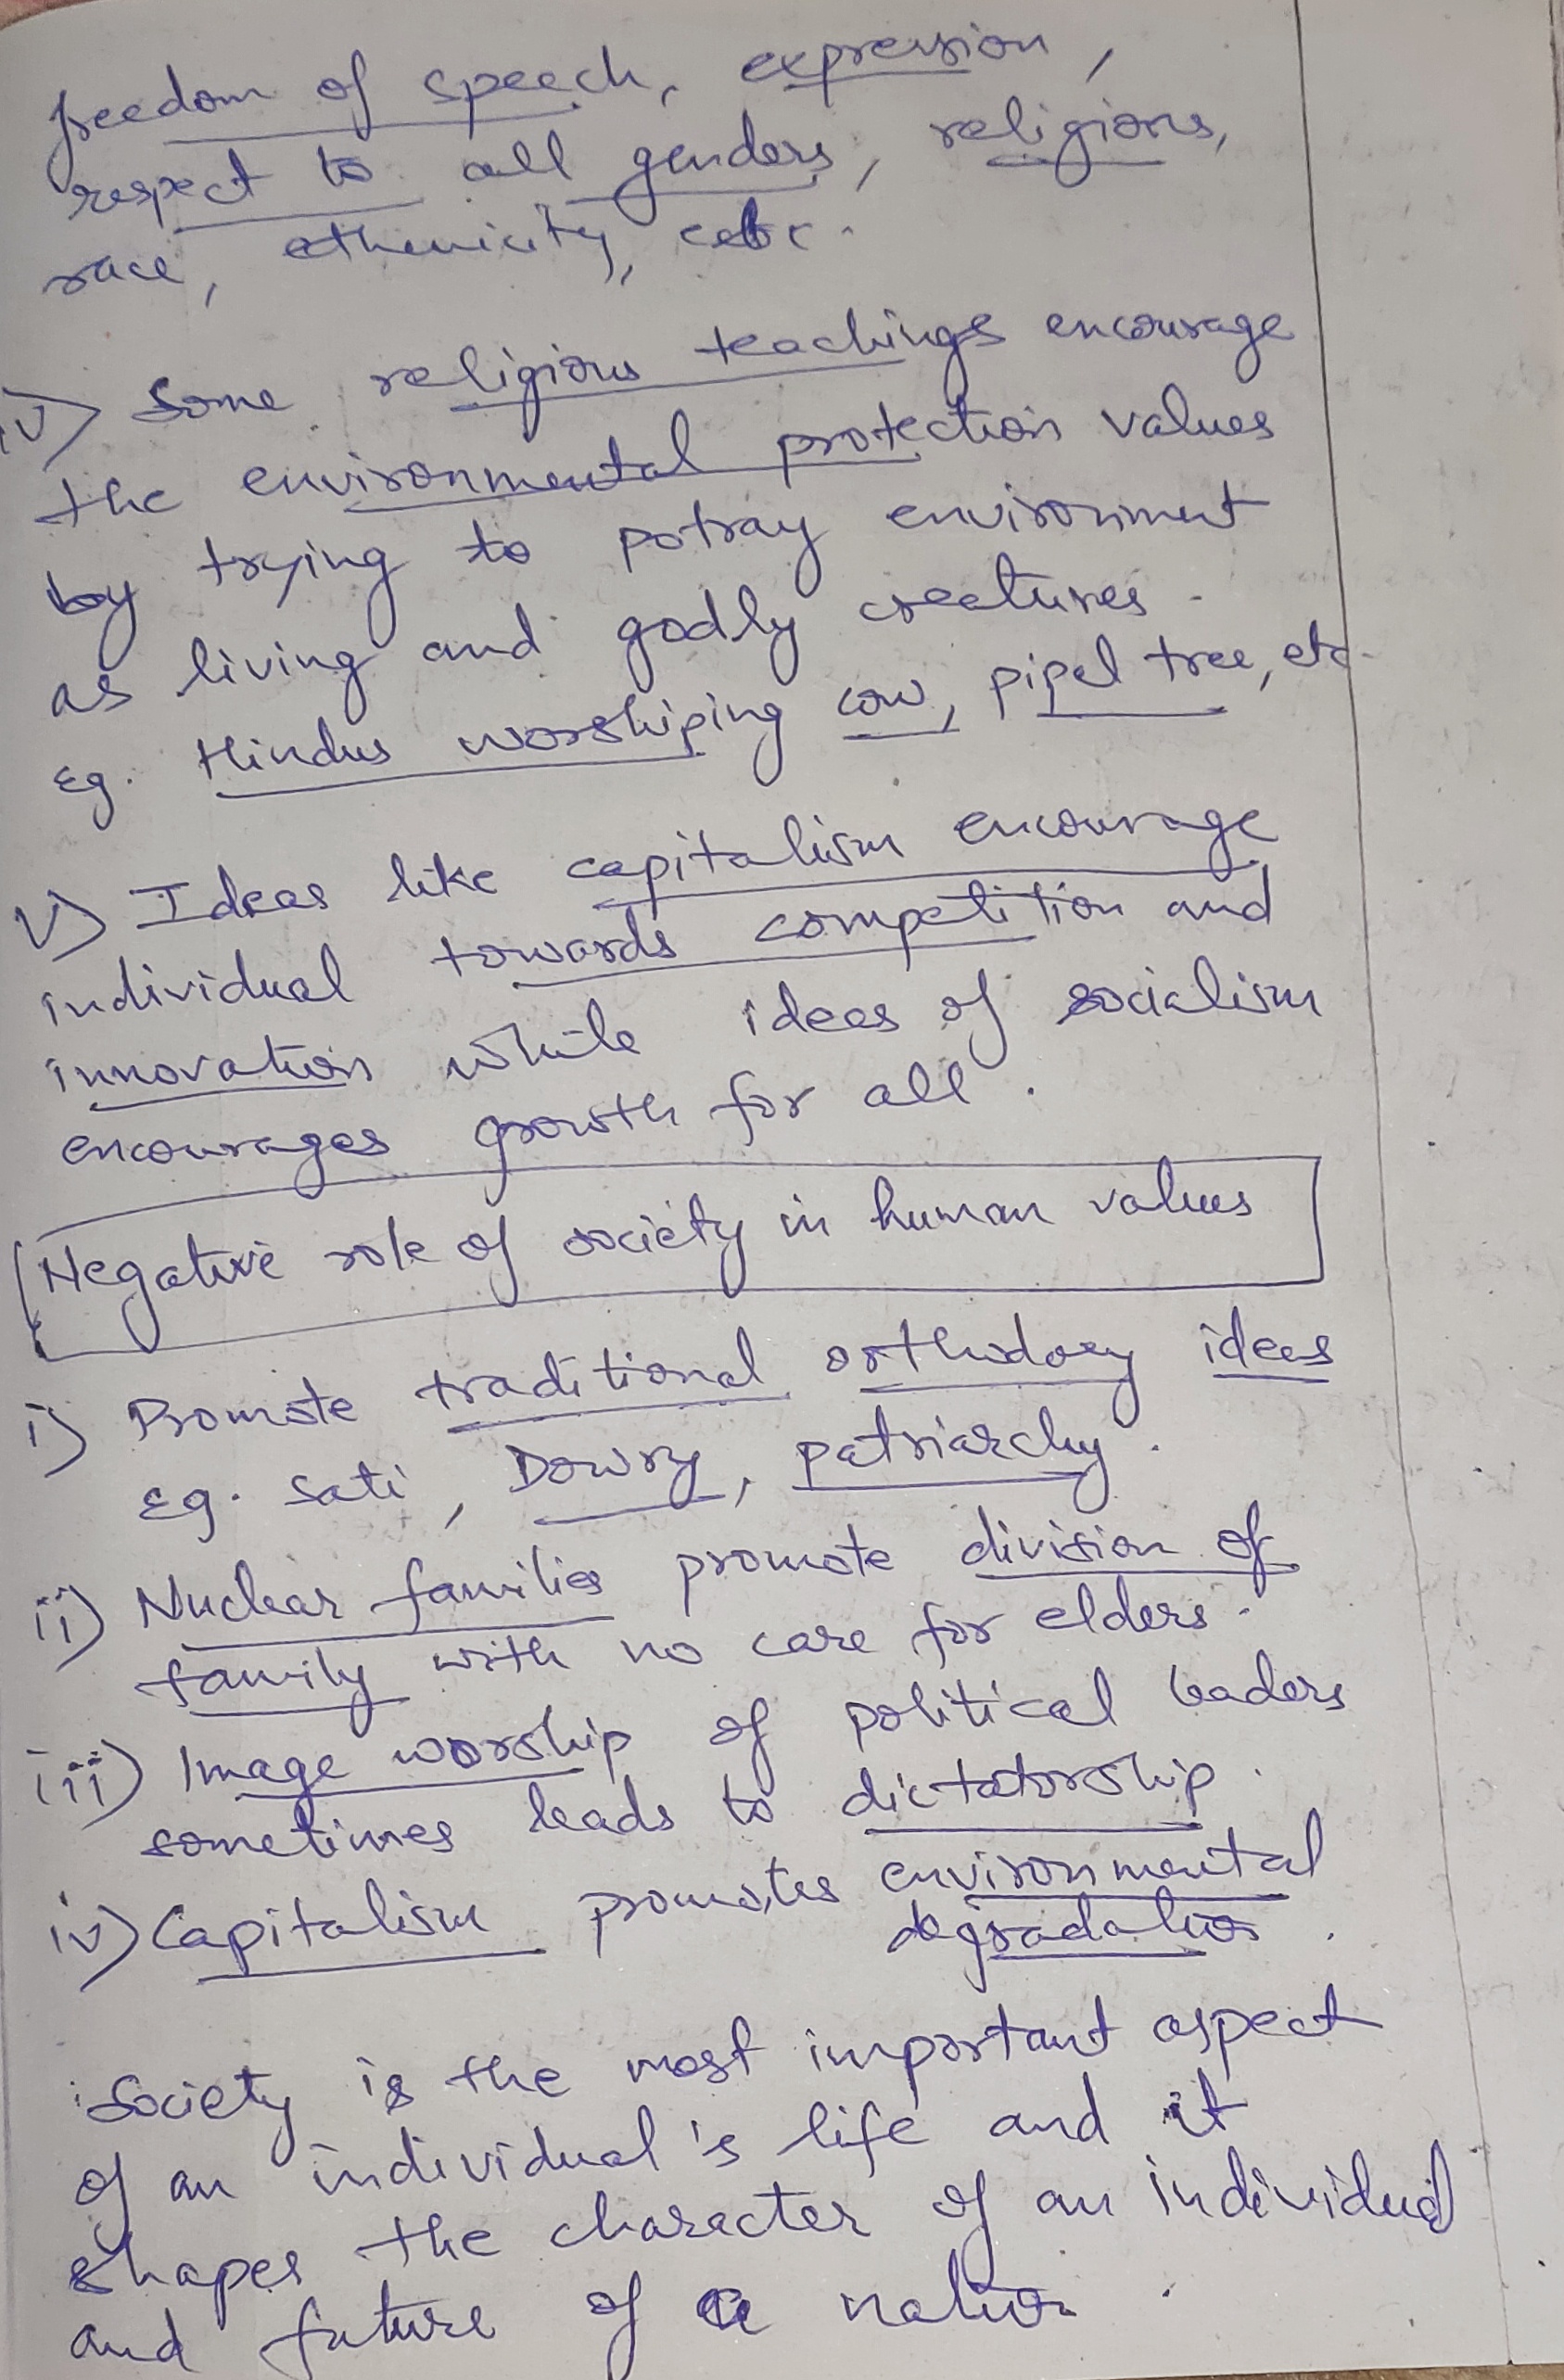 freedom of speech, expression,
respect to all genders, religions,
race, ethenicity, etc.
iv) Some religious teachings encourage
the environmental protection values
by trying to potray environment
as living and godly creatures.
Eg. Hindus worshiping cow, pipel tree, etc.
v) Ideas like capitalism encourage
individual towards competition and
innovation while ideas of socialism
encourages growth for all.
Negative role of society in human values
i) Promote traditional orthodoxy ideas
Eg. Sati, Dowry, patriarchy.
ii) Nuclear families promote division of
family with no care for elders.
iii) Image worship of political leaders
sometimes leads to dictatorship.
iv) Capitalism promotes environmental
degradation.
Society is the most important aspect
of an individual's life and it
shapes the character of an individual
and future of a nation.